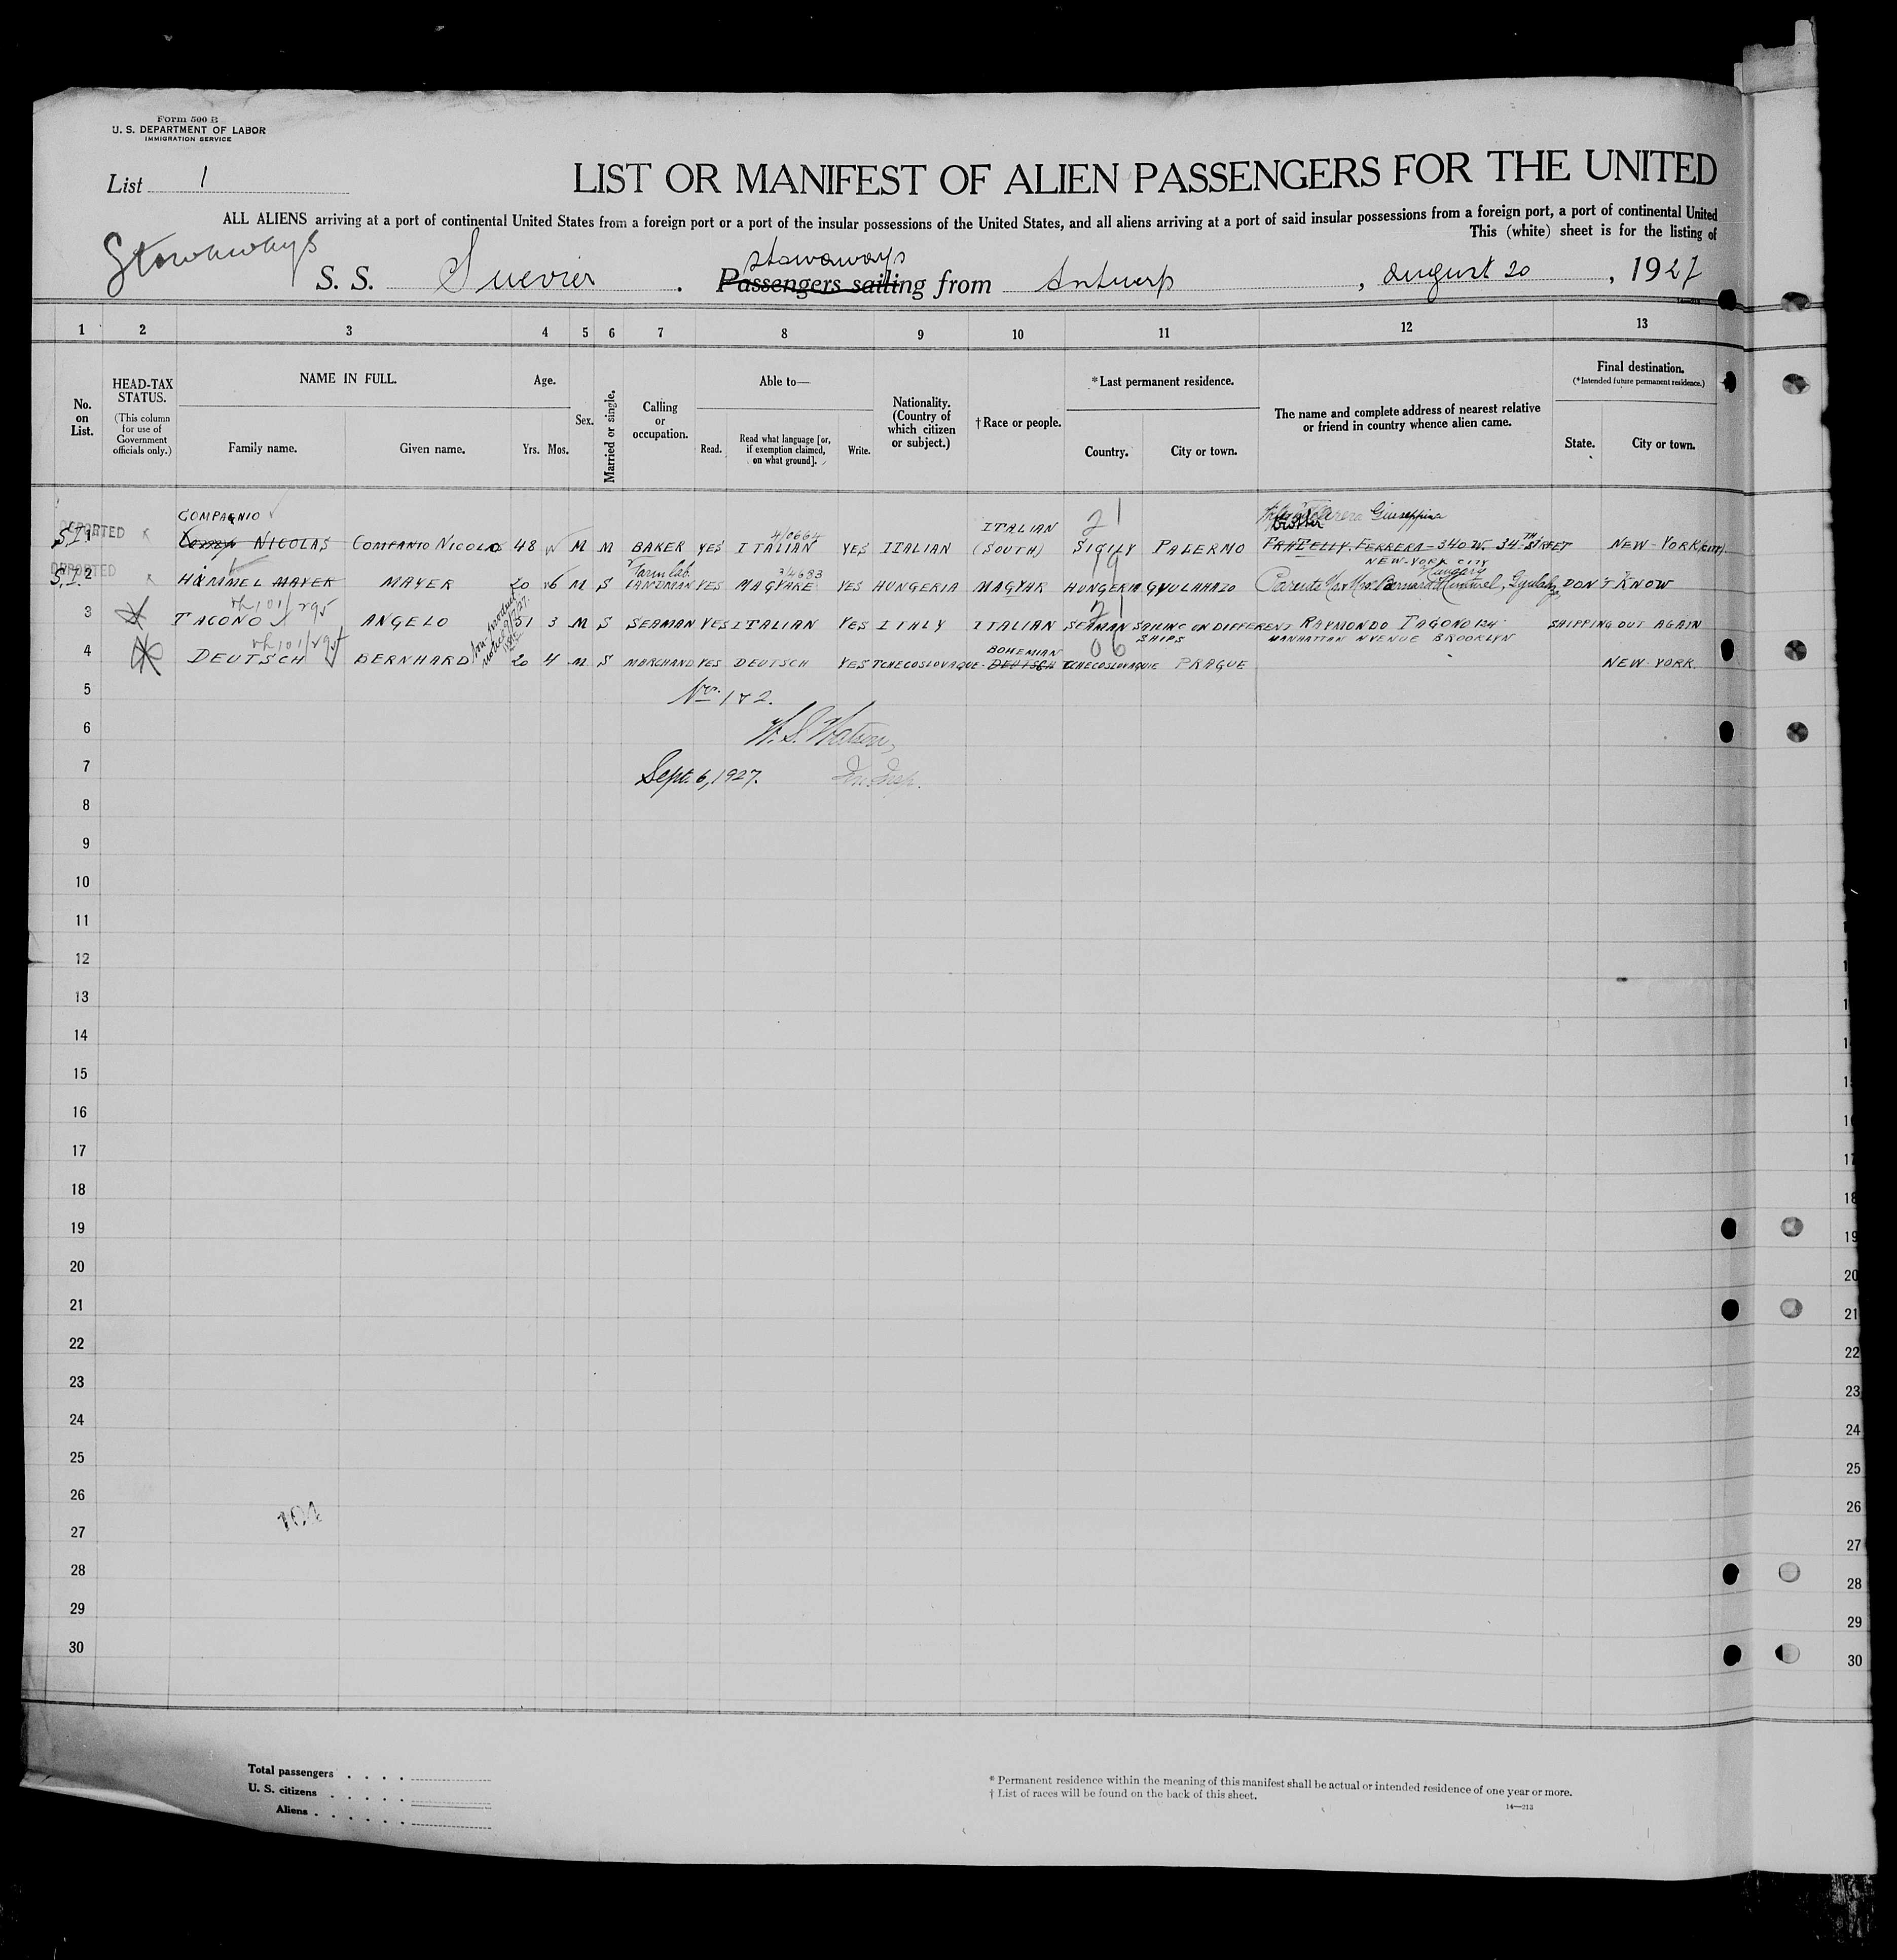 Form 500 B
U. S. DEPARTMENT OF LABOR
IMMIGRATION SERVICE
List 1
LIST OR MANIFEST OF ALIEN PASSENGERS FOR THE UNITED
ALL ALIENS arriving at a port of continental United States from a foreign port or a port of the insular possessions of the United States, and all aliens arriving at a port of said insular possessions from a foreign port, a port of continental United
This (white) sheet is for the listing of
Stowaways
stowaways
S. S. Suevier . Passengers sailing from Antwerp , august 20 , 1927
1 2 3 4 5 6 7 8 9 10 11 12 13
No. on List.
HEAD-TAX STATUS.
(This column for use of Government officials only.)
NAME IN FULL.
Family name. Given name.
Age.
Yrs. Mos.
Sex.
Married or single.
Calling or occupation.
Able to—
Read. Read what language [or, if exemption claimed, on what ground]. Write.
Nationality. (Country of which citizen or subject.)
†Race or people.
*Last permanent residence.
Country. City or town.
The name and complete address of nearest relative or friend in country whence alien came.
Final destination.
(*Intended future permanent residence.)
State. City or town.
COMPAGNIO ITALIAN 21 Giuseppina
DEPORTED 4/0664
S.I. 1 NICOLAS COMPANIO NICOLAS 48 M M BAKER YES ITALIAN YES ITALIAN (SOUTH) SIGILY PALERMO FRATELLY. FERRERA - 340 W. 34TH STREET NEW-YORK (CITY).
NEW-YORK CITY
DEPORTED Farm lab. 2/4683 19 Hungary
S.I. 2 HIMMEL MAYER MAYER 20 6 M S LANDMAN YES MAGYARE YES HUNGERIA MAGYAR HUNGERIA GYULAHAZO Parents Mr. & Mrs. Bernard Himmel, DON'T KNOW
21
3 TAGONO ANGELO 51 3 M S SEAMAN YES ITALIAN YES ITALY ITALIAN SEAMAN SAILING ON DIFFERENT SHIPS RAYMONDO TAGONO 134 SHIPPING OUT AGAIN
MANHATTAN AVENUE BROOKLYN
BOHEMIAN 06
4 DEUTSCH BERNHARD 20 4 M S MARCHAND YES DEUTSCH YES TCHECOSLOVAQUE DEUTSCH TCHECOSLOVAQUIE PRAGUE NEW-YORK.
5 Nos. 1 & 2.
6 W. S. Watson,
7 Sept. 6, 1927. Im. Insp.
8
9
10
11
12
13
14
15
16
17
18 18
19 19
20 20
21 21
22 22
23 23
24 24
25 25
26 26
104
27 27
28 28
29 29
30 30
Total passengers
U. S. citizens
Aliens
* Permanent residence within the meaning of this manifest shall be actual or intended residence of one year or more.
† List of races will be found on the back of this sheet.
14—213